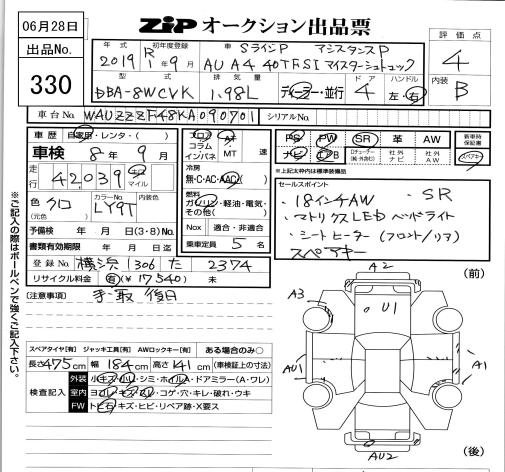 06月28日
ZiP オークション出品票
出品No.
330
年式 初年度登録 車名 SラインP アシスタンスP
2019 R1年9月 AU A4 40TFSI マイスターシュトュック
型式 排気量 ドア ハンドル
DBA-8WCVK 1.98L ディーラー・並行 4 左・右
評価点
4
内装
B
車台No. WAUZZZF48KA090701 シリアルNo.
車歴 自家用・レンタ・( )
車検 8年9月
走行 42,039 キロ マイル
色 クロ (元色) カラーNo. LY9T
予備検 年 月 日(3・8)No.
書類有効期限 年 月 日迄
登録No. 横浜 1306 た 2374
リサイクル料金 有(¥17540) 未
フロア コラム インパネ
AT MT 速
冷房
無・C・AC・AAC
燃料
ガソリン・軽油・電気・その他( )
Nox 適合・非適合
乗車定員 5 名
PS PW SR 革 AW
ナビ エアB
社外ナビ 社外AW
新車時保証書
スペアキー
※上記太枠内は標準装備品
セールスポイント
・18インチAW ・SR
・マトリクスLEDヘッドライト
・シートヒーター(フロント/リア)
スペアキー
(注意事項) 手・取 後日
※ご記入の際はボールペンで強くご記入下さい。
スペアタイヤ[有] ジャッキ工具[有] AWロックキー[有] ある場合のみ○
長さ475cm 幅184cm 高さ141cm (車検証上の寸法)
検査記入
外装 小キズ・小凹・シミ・ホイルA・ドアミラー(A・ワレ)
室内 ヨゴレ・キズ・スレ・コゲ・穴・キレ・破れ・ウキ
FW トビ石・キズ・ヒビ・リペア跡・X要ス
(前)
A2
U1
A3
AU1
A1
AU2
(後)